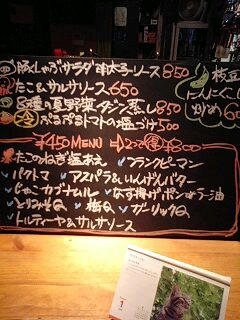 豚しゃぶサラダ 明太子ソース 850
たこ&サルサソース 650
8種の夏野菜タジン蒸し 850
ぷるぷるトマトの塩づけ 500
枝豆
にんにく
炒め 60
¥450 MENU
¥800
たこのねぎ塩あえ フランクピーマン
パクトマ アスパラ&いんげんバター
じゃこカプナータ なす揚げポン
とりみそQ 梅Q ガーリックQ
トルティーヤ&サルサソース
1